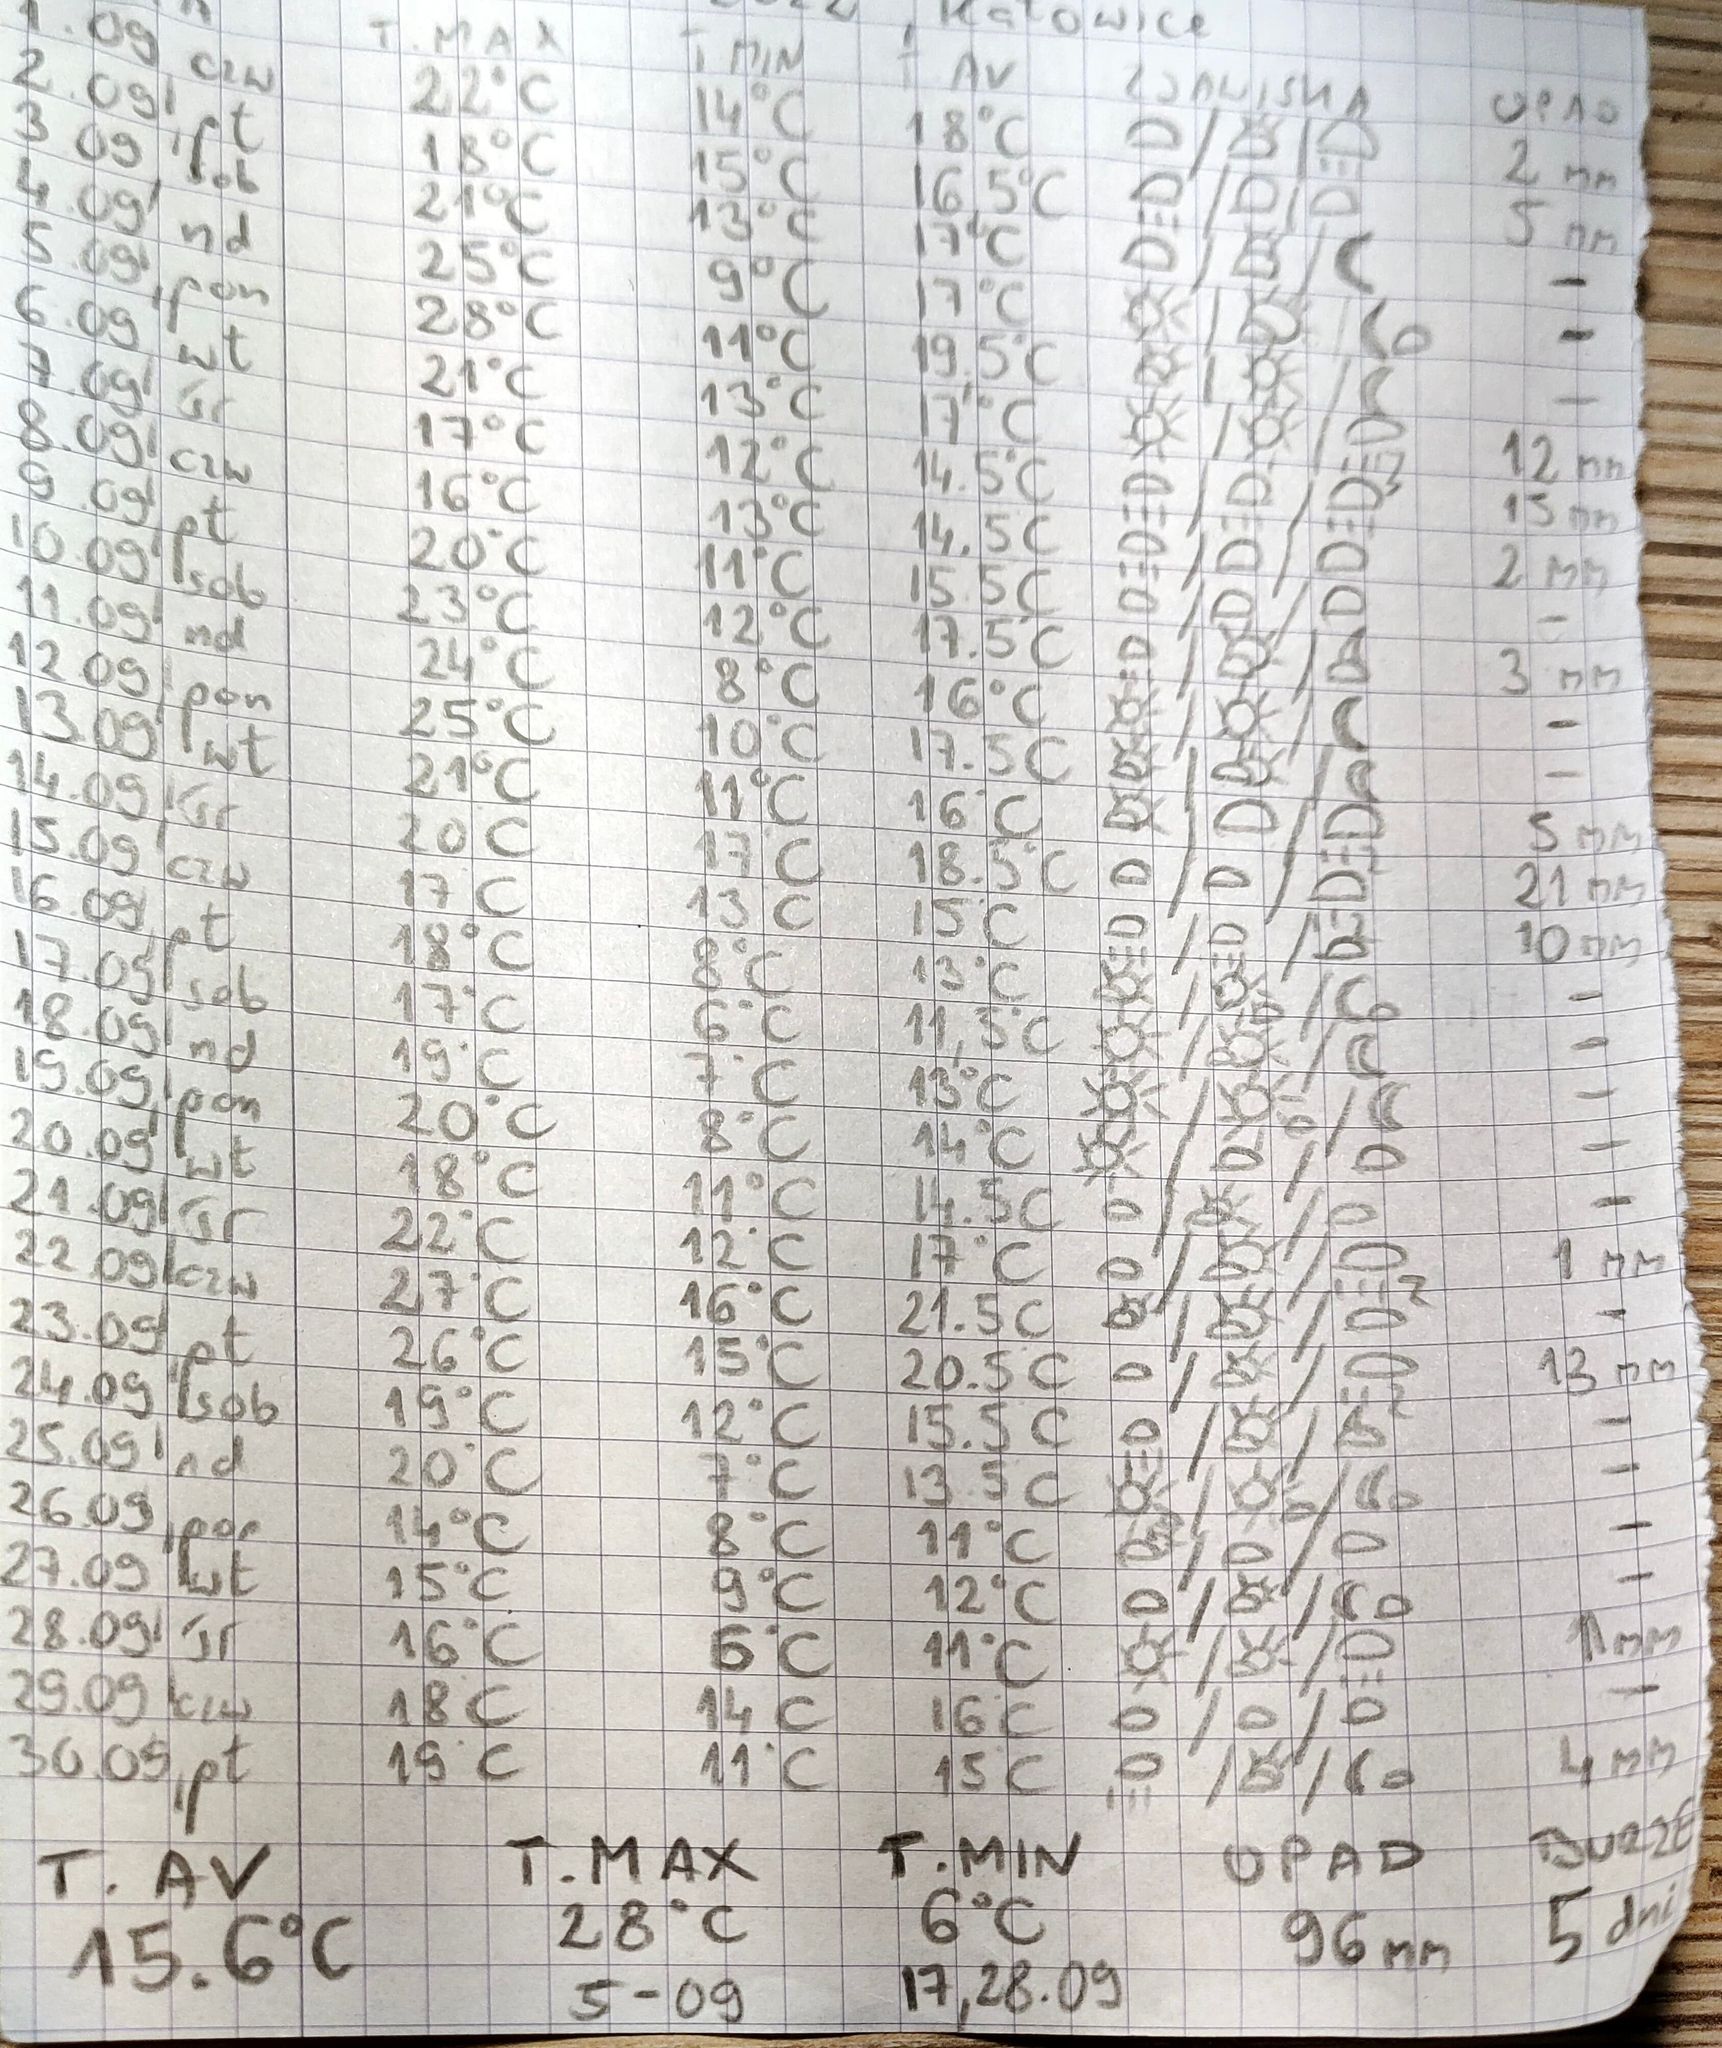 2022, Katowice
T.MAX T MIN T AV ZJAWISKA OPAD
1.09 czw 22°C 14°C 18°C 2 mm
2.09 pt 18°C 15°C 16.5°C 5 mm
3 09 sob 21°C 13°C 17°C -
4.09 nd 25°C 9°C 17°C -
5.09 pon 28°C 11°C 19.5°C -
6.09 wt 21°C 13°C 17°C 12 mm
7.09 śr 17°C 12°C 14.5°C 15 mm
8.09 czw 16°C 13°C 14.5C 2 mm
9.09 pt 20°C 11°C 15.5C -
10.09 sob 23°C 12°C 17.5C 3 mm
11.09 nd 24°C 8°C 16°C -
12 09 pon 25°C 10°C 17.5C -
13.09 wt 21°C 11°C 16°C 5 mm
14.09 śr 20°C 17°C 18.5°C 21 mm
15.09 czw 17°C 13°C 15°C 10 mm
16.09 pt 18°C 8°C 13°C -
17.09 sob 17°C 6°C 11,5°C -
18.09 nd 19°C 7°C 13°C -
19.09 pon 20°C 8°C 14°C -
20.09 wt 18°C 11°C 14.5C -
21.09 śr 22°C 12°C 17°C 1 mm
22.09 czw 27°C 16°C 21.5C -
23.09 pt 26°C 15°C 20.5C 13 mm
24.09 sob 19°C 12°C 15.5C -
25.09 nd 20°C 7°C 13.5C -
26.09 pon 14°C 8°C 11°C -
27.09 wt 15°C 9°C 12°C -
28.09 śr 16°C 6°C 11°C mm
29.09 czw 18°C 14°C 16°C -
30.09 pt 19°C 11°C 15°C 4 mm
T. AV T.MAX T.MIN OPAD BURZE
15.6°C 28°C 6°C 96 mm 5 dni
5-09 17,28.09